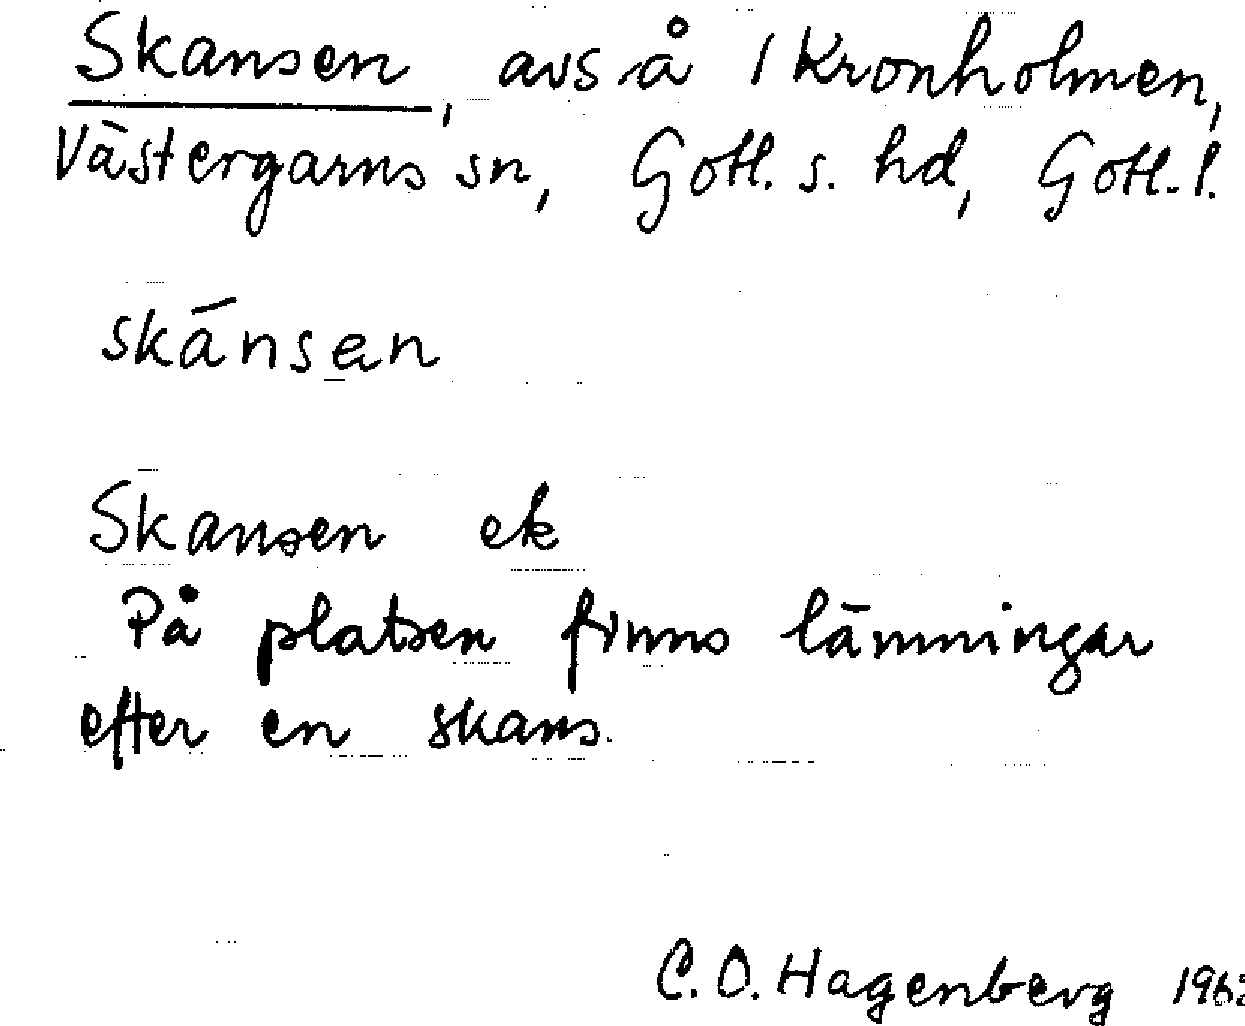 Skansen, avs å 1 Kronholmen,
Västergarns sn, Gotl. s. hd, Gotl. l.
skánsen
Skansen ek
På platsen finns lämningar
efter en skans.
C. O. Hagenberg